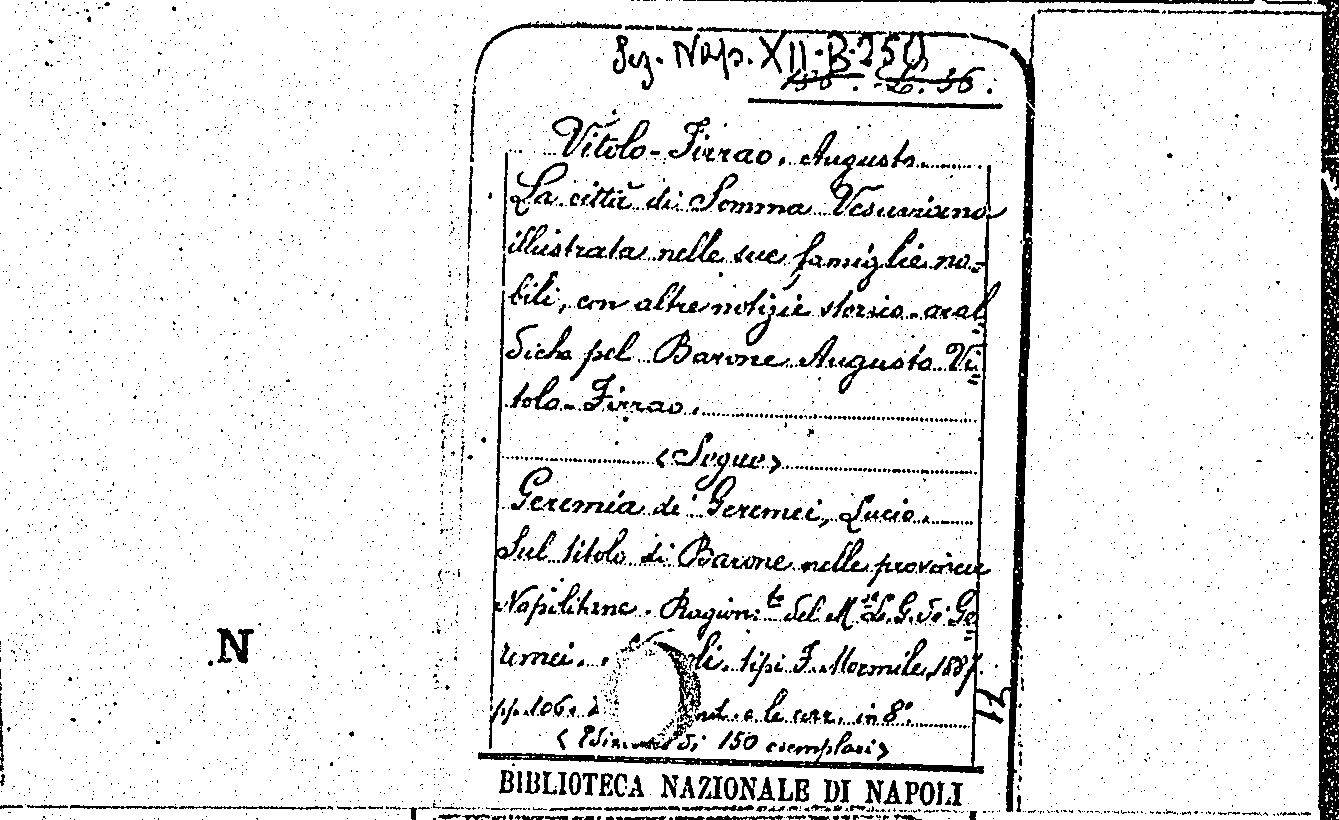 Sez. Nap. XII. B. 250
Vitolo-Firrao, Augusto
La città di Somma Vesuviana
illustrata nelle sue famiglie no=
bili, con altre notizie storico-aral
diche pel Barone Augusto Vi=
tolo-Firrao.
<Segue>
Geremia di Geremei, Lucio.
Sul titolo di Barone nelle provincie
Napolitane. Ragion.to del M.se L. G. di Ge=
remei. li. tipi F. Mormile, 1887.
pp. 106. e le corr. in 8°.
di 150 esemplari>
N
BIBLIOTECA NAZIONALE DI NAPOLI